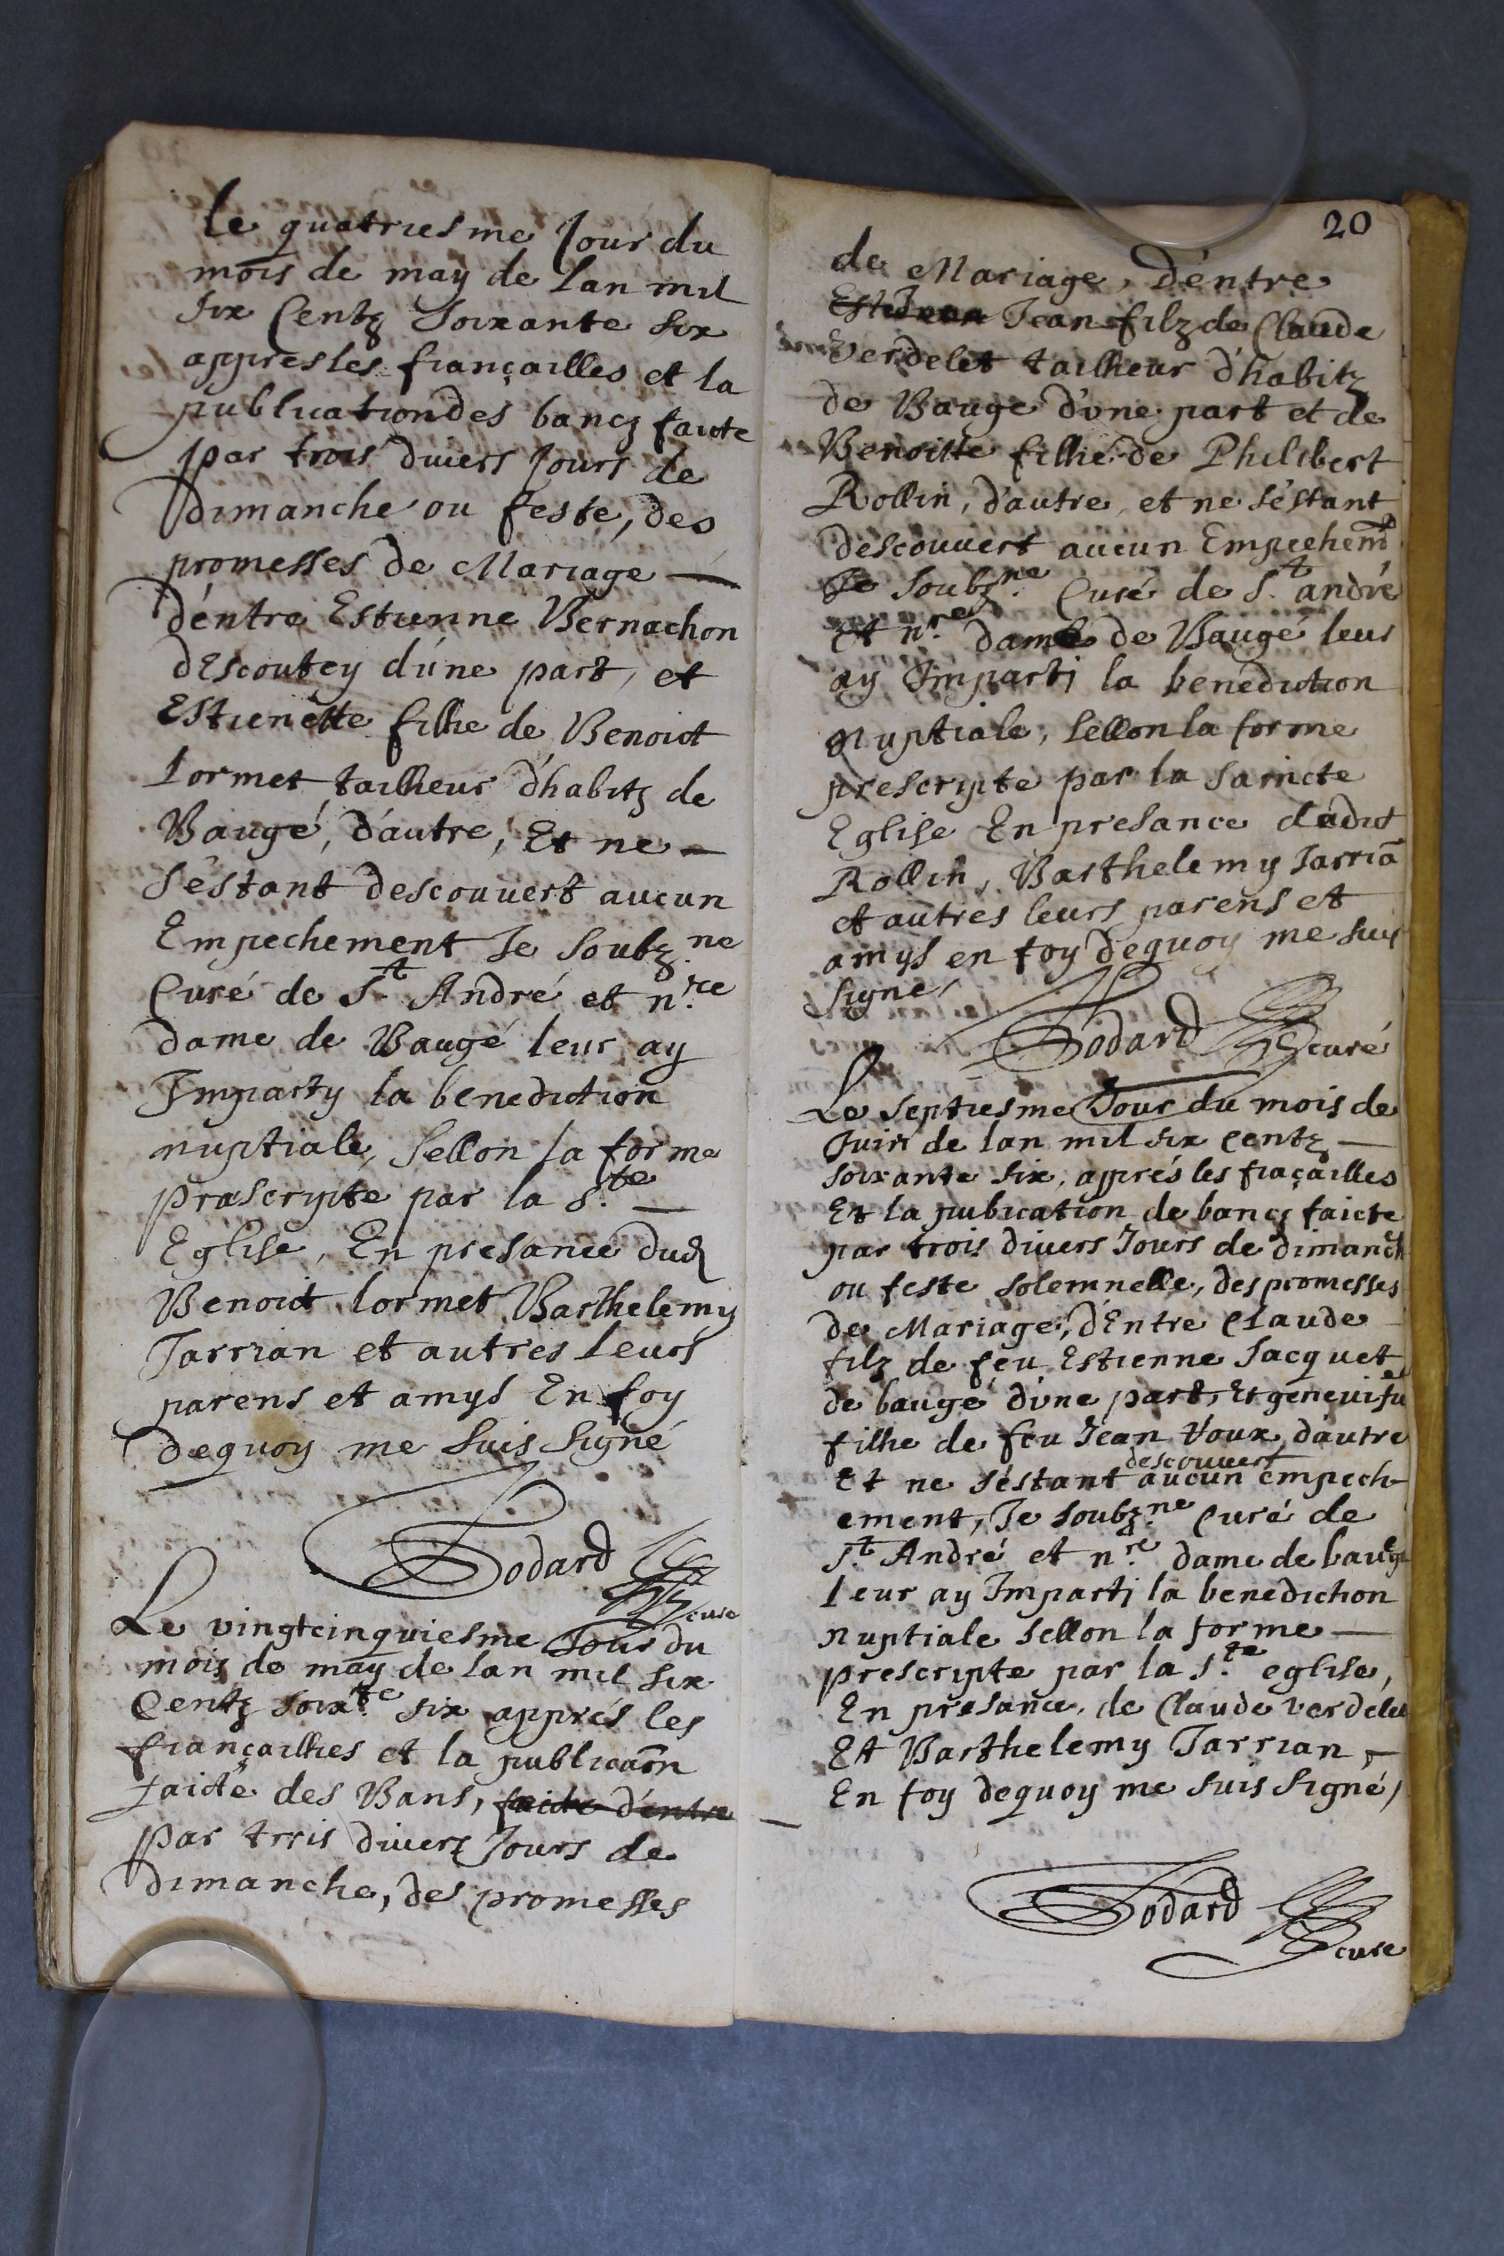 le quatriesme Jour du
mois de may de lan mil
six Centz Soixante six
appres les fiançailles et la
publication des bancz faicte
par trois divers Jours de
dimanche ou feste, des
promesses de Mariage —
d'entre Estienne Bernachon
dEscoutey d'une part, et
Estienette fillie de Benoict
Lormet tallieur d'habitz de
Baugé, d'autre, Et ne —
s'éstant descouvert aucun
Empechement Je soubz.ne
Curé de S.t André et n.re
dame de Baugé leur ay
Imparty la benediction
nuptiale, sellon la forme
præscripte par la S.te —
Eglise, En presance dud
Benoict lormet Barthelemy
Jarrian et autres leurs
parens et amys En foy
dequoy me suis signé
Godard
curé
Le vingtcinquiesme Jour du
mois de may de lan mil six
Centz soix.te six apprés les
fiançaillies et la publicaōn
faicte des Bans, faicte d'entre
par trris divers Jours de
dimanche, des promesses
20
de Mariage, d'entre
Jean filz de Claude
Verdelet taillieur d'habitz
de Baugé d'une part et de
Benoitte fillie de Philibert
Rollin, d'autre, et ne s'éstant
descouvert aucun Empechem.t
Je soubz.ne Curé de S.t andré
et n.re dame de Baugé leur
ay Imparti la benediction
Nuptiale, sellon la forme
prescripte par la saincte
Eglise En presance dudict
Rollin, Barthelemy Jarriā
et autres leurs parens et
amys en foy dequoy me suis
signé,
Godard
curé
Le septiesme Jour du mois de
Juin de lan mil six centz —
soixante six, apprés les fiaçailles
Et la pubication de bancz faicte
par trois divers Jours de dimanch
ou feste solemnelle, des promesses
de Mariage, d'Entre Claude
filz de feu Estienne Jacquet
de baugé d'une part, Et genevifue
fillie de feu Jean Voux, d'autre
descouvert
Et ne s'éstant aucun empech-
ement, Je soubz.ne Curé de
S.t André et n.re dame de baugé
leur ay Imparti la benediction
nuptiale sellon la forme —
prescripte par la S.te eglise,
En presance, de Claude verdelet
Et Barthelemy Jarrian, —
En foy dequoy me suis signé,
Godard
curé